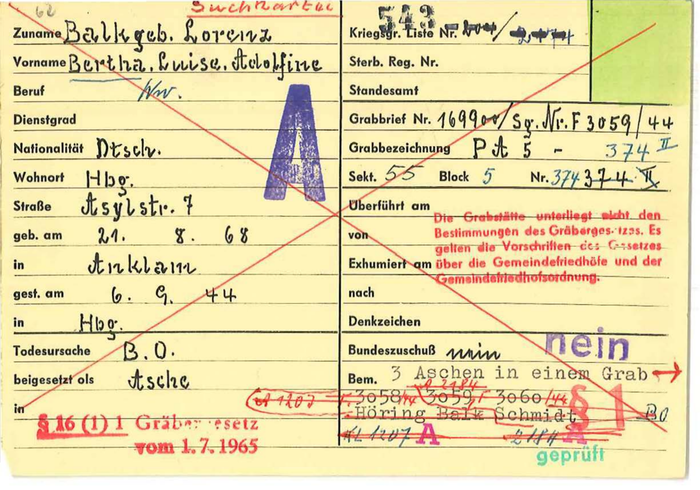 62
Suchkartei
Zuname Balk geb. Lorenz
Vorname Bertha, Luise, Adolfine
Beruf Ww.
Dienstgrad
Nationalität Dtsch.
Wohnort Hbg.
Straße Asylstr. 7
geb. am 21. 8. 68
in Anklam
gest. am 6. 9. 44
in Hbg.
Todesursache B.O.
beigesetzt als Asche
in
§ 16 (1) 1 Gräbergesetz
vom 1.7.1965
A
543
Kriegsgr. Liste Nr.
Sterb. Reg. Nr.
Standesamt
Grabbrief Nr. 169900/Sg.Nr.F 3059/44
Grabbezeichnung PA 5 - 374 II
Sekt. 55 Block 5 Nr. 374 374 II
Überführt am
von
Exhumiert am
nach
Denkzeichen
Die Grabstätte unterliegt nicht den
Bestimmungen des Gräbergesetzes. Es
gelten die Vorschriften des Gesetzes
über die Gemeindefriedhöfe und der
Gemeindefriedhofsordnung.
nein
Bundeszuschuß nein
Bem. 3 Aschen in einem Grab
A 2184
A 1207 F. 3058/44 3059, F 3060/44
Höring Balk Schmidt § 1 BO
KL 1207 A 2184 A
geprüft